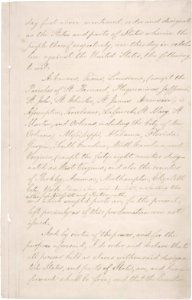 day first above mentioned, order and designate
as the States and parts of States wherein the
people thereof respectively, are this day in rebel-
lion against the United States, the following,
to wit:
Arkansas, Texas, Louisiana, (except the
Parishes of St. Bernard, Plaquemines, Jefferson,
St. John, St. Charles, St. James, Ascension,
Assumption, Terrebonne, Lafourche, St. Mary, St.
Martin, and Orleans, including the City of New
Orleans) Mississippi, Alabama, Florida,
Georgia, South Carolina, North Carolina, and
Virginia, (except the forty-eight counties desig-
nated as West Virginia, and also the counties
of Berkley, Accomac, Northampton, Elizabeth
City, York, Princess Ann, and Norfolk, including the
cities of Norfolk and Portsmouth
and which excepted parts are, for the present,
left precisely as if this proclamation were not
issued.
And by virtue of the power, and for the
purpose aforesaid, I do order and declare that
all persons held as slaves within said designa-
ted States, and parts of States, are, and hence-
forward shall be free; and that the Execu